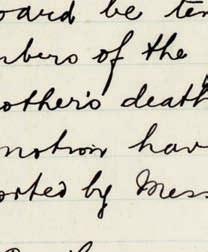 oard be ten
mbers of the
other's death
motion hav
orted by Mess